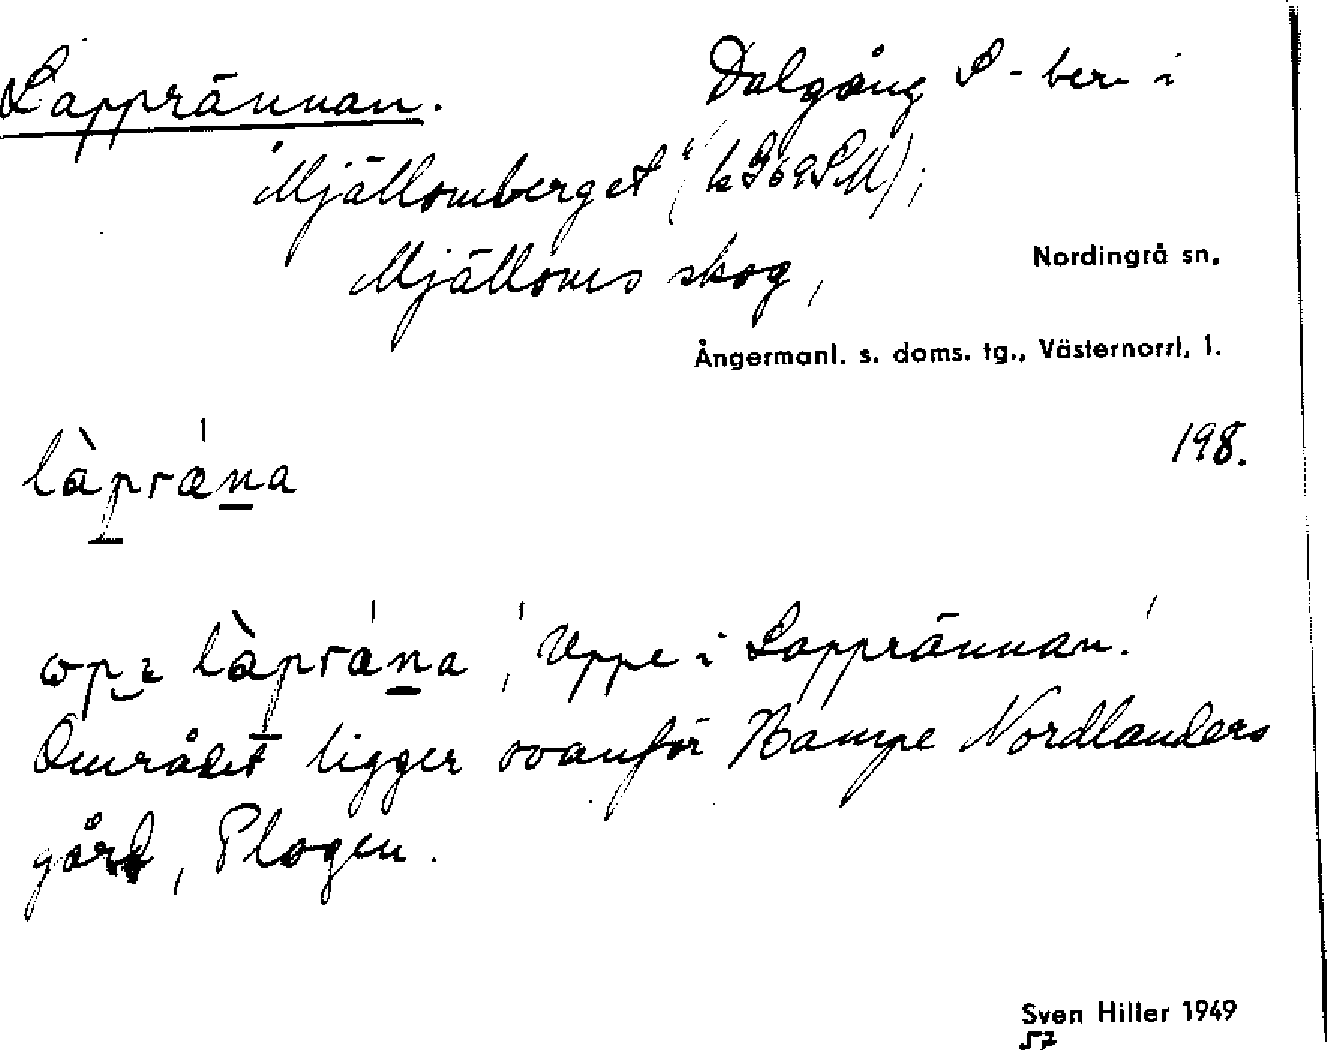 Lapprännan.
Dalgång S - ber i
"Mjällomberget" (k 369SM);
Mjälloms skog,
Nordingrå sn,
Ångermanl. s. doms. tg., Västernorrl. l.
198.
làpræ´na
làpræ´na 'Uppe i Lapprännan.'
Området ligger ovanför Hampe Nordlanders
gård, Plogen.
Sven Hiller 1949
57